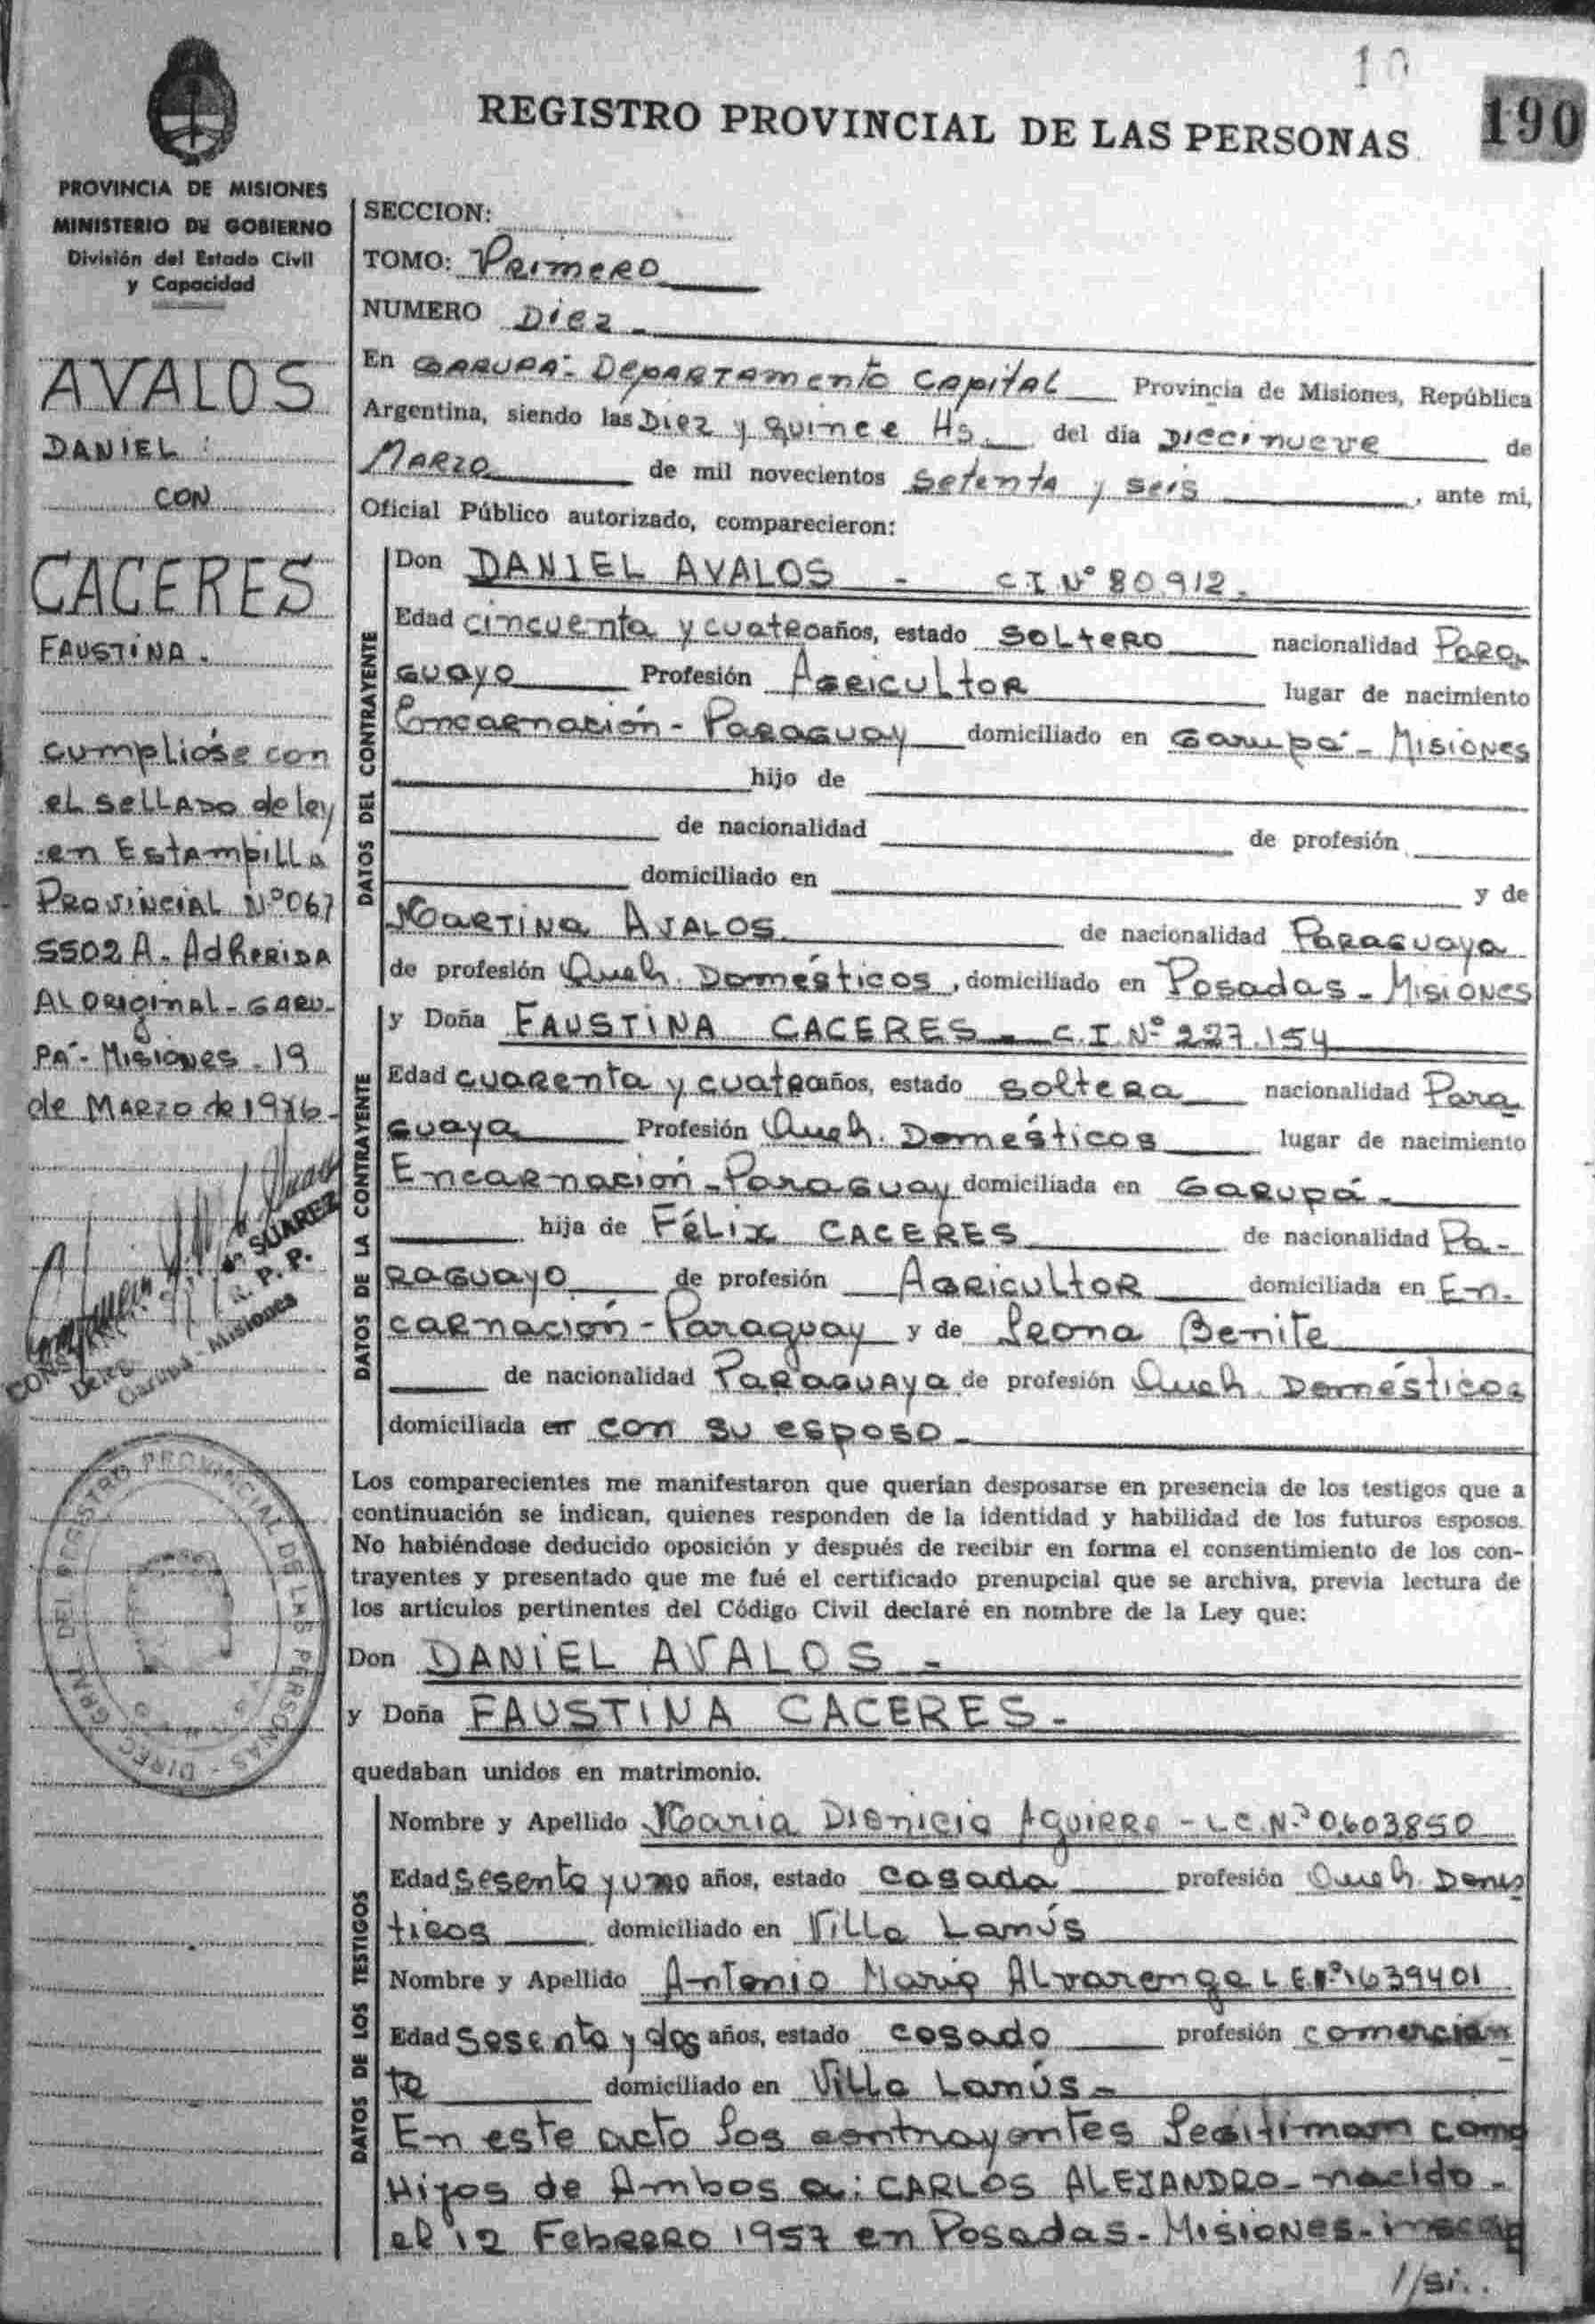 10
190
REGISTRO PROVINCIAL DE LAS PERSONAS
PROVINCIA DE MISIONES
MINISTERIO DE GOBIERNO
División del Estado Civil
y Capacidad
AVALOS
DANIEL
CON
CACERES
FAUSTINA.
cumpliose con
el sellado de ley
en Estampilla
Provincial Nº 067
5502 A. Adherida
Al original - Garu-
pá - Misiones. 19
de Marzo de 1976.
SUAREZ
R. P. P.
Garupá - Misiones
DIREC. GRAL. DEL REGISTRO PROVINCIAL DE LAS PERSONAS
SECCION:
TOMO: Primero
NUMERO Diez
En GARUPA - Departamento Capital Provincia de Misiones, República
Argentina, siendo las Diez y Quince Hs. del día Diecinueve de
Marzo de mil novecientos setenta y seis, ante mi,
Oficial Público autorizado, comparecieron:
DATOS DEL CONTRAYENTE
Don DANIEL AVALOS - C.I Nº 80.912.
Edad cincuenta y cuatro años, estado soltero nacionalidad Para
guayo Profesión Agricultor lugar de nacimiento
Encarnación - Paraguay domiciliado en Garupá - Misiones
hijo de
de nacionalidad de profesión
domiciliado en y de
Martina Avalos de nacionalidad Paraguaya
de profesión Queh. Domésticos, domiciliado en Posadas - Misiones
DATOS DE LA CONTRAYENTE
y Doña FAUSTINA CACERES - C.I. Nº 227.154
Edad cuarenta y cuatro años, estado soltera nacionalidad Para
guaya Profesión Queh. Domésticos lugar de nacimiento
Encarnación - Paraguay domiciliada en Garupá -
hija de Félix CACERES de nacionalidad Pa-
raguayo de profesión Agricultor domiciliada en En-
carnación - Paraguay y de Leona Benite
de nacionalidad Paraguaya de profesión Queh. Domésticos
domiciliada en con su esposo -
Los comparecientes me manifestaron que querían desposarse en presencia de los testigos que a
continuación se indican, quienes responden de la identidad y habilidad de los futuros esposos.
No habiéndose deducido oposición y después de recibir en forma el consentimiento de los con-
trayentes y presentado que me fué el certificado prenupcial que se archiva, previa lectura de
los artículos pertinentes del Código Civil declaré en nombre de la Ley que:
Don DANIEL AVALOS -
y Doña FAUSTINA CACERES -
quedaban unidos en matrimonio.
DATOS DE LOS TESTIGOS
Nombre y Apellido Maria Dionicia Aguirre - L.C. Nº 0603850
Edad sesenta y uno años, estado casada profesión Queh. Domes
ticos domiciliado en Villa Lanús
Nombre y Apellido Antonio Mario Alvarenga L.E. Nº 1639401
Edad sesenta y dos años, estado casado profesión comercian
te domiciliado en Villa Lanús -
En este acto los contrayentes legitiman como
Hijos de Ambos a: CARLOS ALEJANDRO - nacido -
el 12 Febrero 1957 en Posadas - Misiones - inscrip
//si..